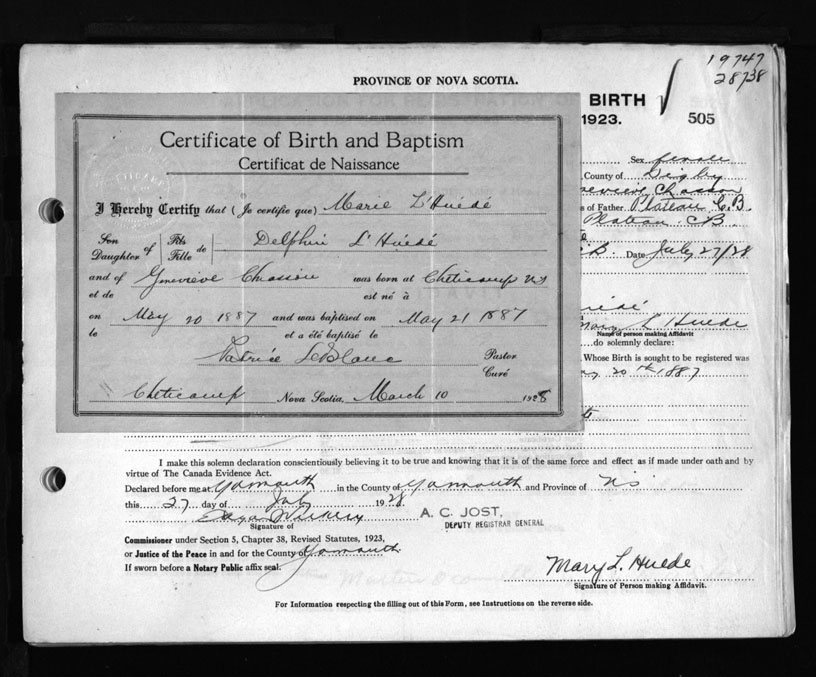 19747
28738
PROVINCE OF NOVA SCOTIA.
BIRTH
1923.
505
Sex female
County of Digby
Chasson
of Father Plateau C.B.
Plateau C.B.
Date July 27/28
Certificate of Birth and Baptism
Certificat de Naissance
I Hereby Certify that (Je certifie que) Marie L'Huédé
Son Daughter of Fils Fille de Delphin L'Huédé
and of Geneviève Chiasson was born at Cheticamp NS
et de est né à
on May 20 1887 and was baptised on May 21 1887
le et a été baptisé le
Patrice LeBlanc Pastor
Curé
Cheticamp Nova Scotia, March 10 1928
L'Huede
Name of person making Affidavit
do solemnly declare:
Whose Birth is sought to be registered was
20th 1887
I make this solemn declaration conscientiously believing it to be true and knowing that it is of the same force and effect as if made under oath and by
virtue of The Canada Evidence Act.
Declared before me at Yarmouth in the County of Yarmouth and Province of NS
this 27 day of July 1928
Signature of
A. C. JOST,
DEPUTY REGISTRAR GENERAL
Commissioner under Section 5, Chapter 38, Revised Statutes, 1923,
or Justice of the Peace in and for the County of Yarmouth
If sworn before a Notary Public affix seal.
Mary L. Huede
Signature of Person making Affidavit.
For Information respecting the filling out of this Form, see Instructions on the reverse side.